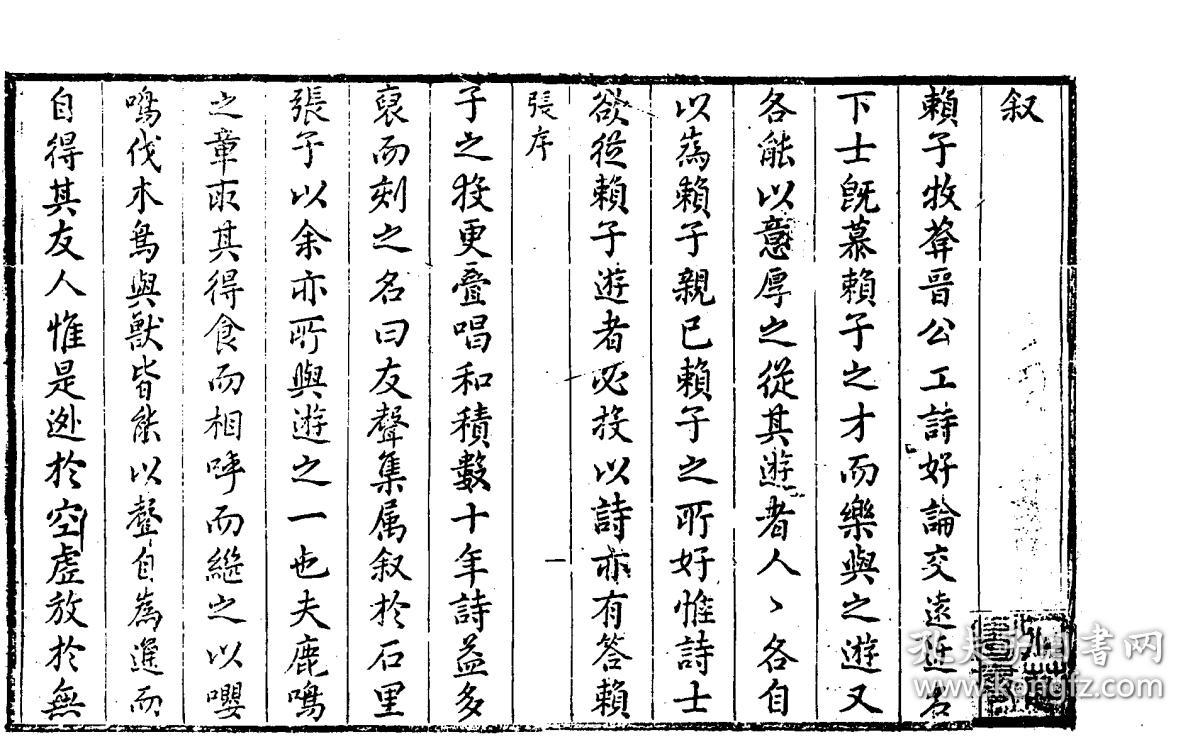 叙
賴子牧葊晉公工詩好論交遠近名
下士既慕賴子之才而樂與之遊又
各能以意厚之從其遊者人〻各自
以為賴子親已賴子之所好惟詩士
欲從賴子遊者必投以詩亦有答賴
張序 一
子之投更疊唱和積數十年詩益多
裒而刻之名曰友聲集属叙於石里
張子以余亦所與遊之一也夫鹿鳴
之章取其得食而相呼而繼之以嚶
鳴伐木鳥與獸皆能以聲自為遲而
自得其友人惟是逃於空虛放於無
孔夫子旧书网
www.kongfz.com